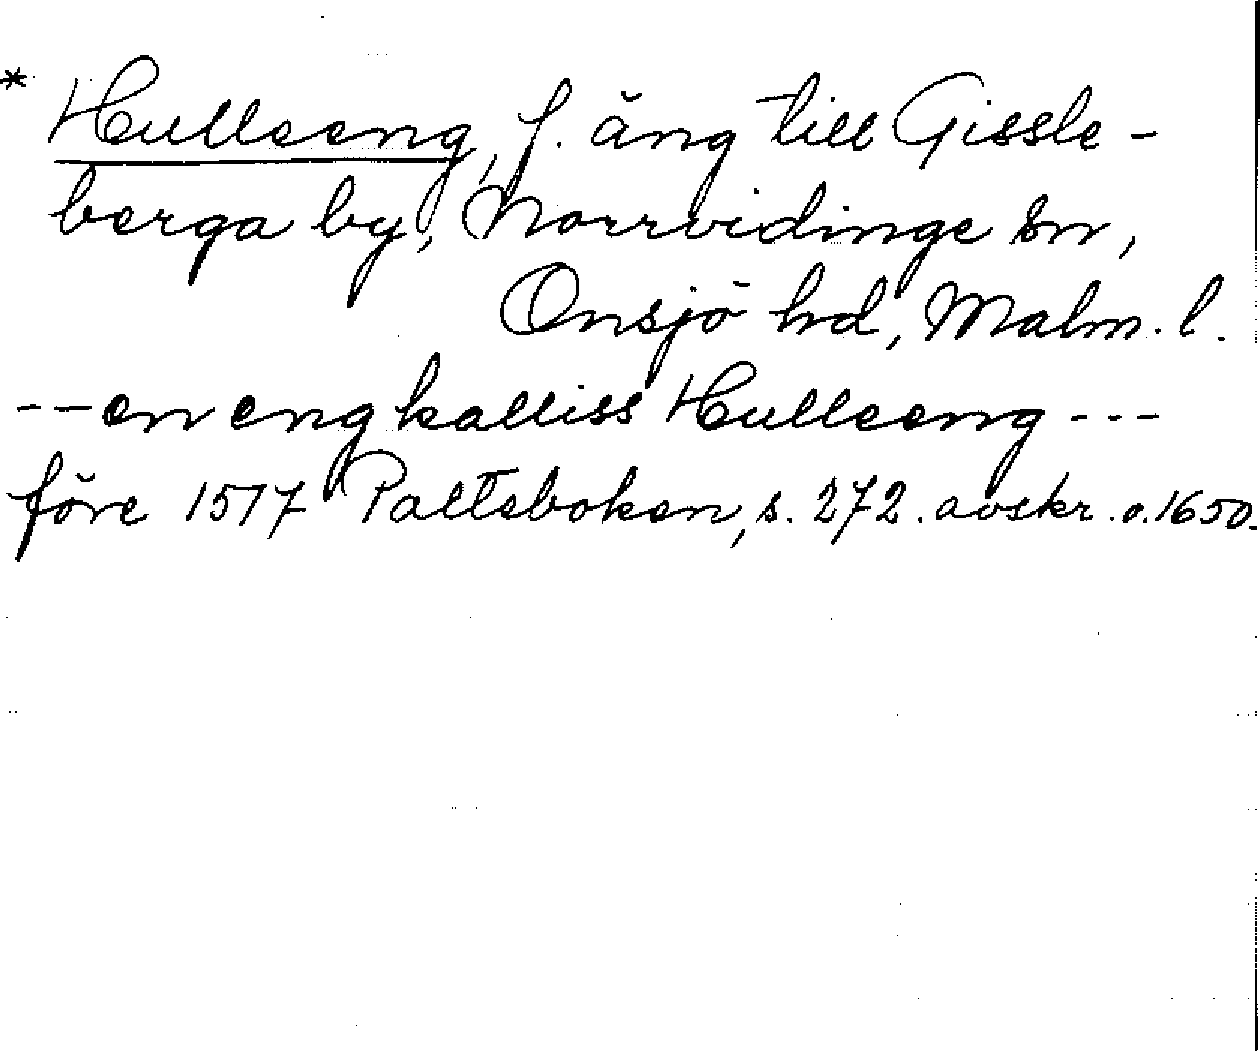 * Hulleeng, f. äng till Gissle-
berga by, Norrvidinge sn,
Onsjö hd, Malm. l.
-- en eng kalliss Hulleeng ---
före 1517 Palteboken, s. 272. avskr. o. 1650.